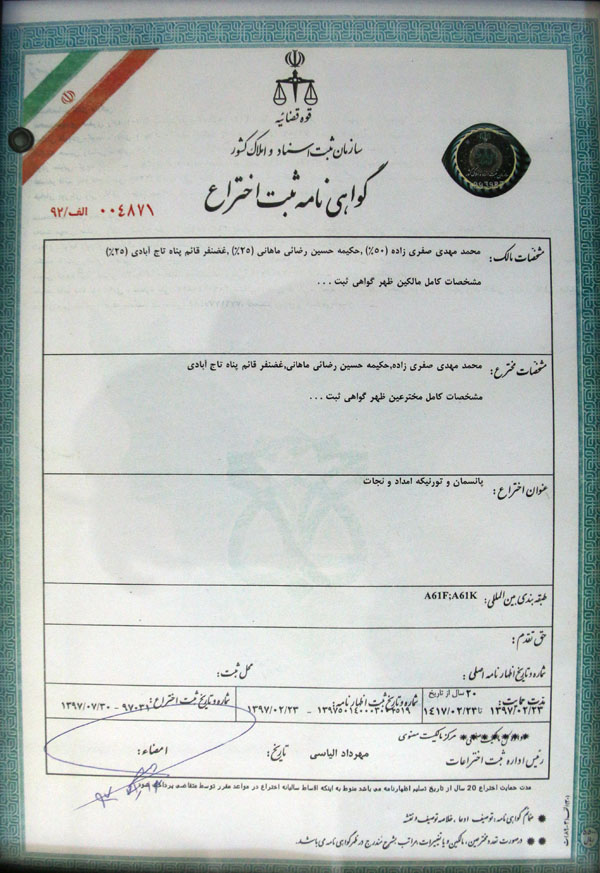 قوه قضائیه
سازمان ثبت اسناد و املاک کشور
گواهی نامه ثبت اختراع
۰۰۴۸۷۱ الف/۹۲
مشخصات مالک: محمد مهدی صفری زاده (۵۰٪) ,حکیمه حسین رضائی ماهانی (۲۵٪) ,غضنفر قائم پناه تاج آبادی (۲۵٪)
مشخصات کامل مالکین ظهر گواهی ثبت . . .
مشخصات مخترع: محمد مهدی صفری زاده,حکیمه حسین رضائی ماهانی,غضنفر قائم پناه تاج آبادی
مشخصات کامل مخترعین ظهر گواهی ثبت . . .
عنوان اختراع: پانسمان و تورنیکه امداد و نجات
طبقه بندی بین المللی: A61F;A61K
حق تقدم:
شماره و تاریخ اظهارنامه اصلی: محل ثبت:
مدت حمایت: ۲۰ سال از تاریخ ۱۳۹۷/۰۲/۲۳ تا ۱۴۱۷/۰۲/۲۳
شماره و تاریخ ثبت اظهارنامه: - ۱۳۹۷/۰۲/۲۳
شماره و تاریخ ثبت اختراع: - ۱۳۹۷/۰۷/۳۰
مرکز مالکیت معنوی
رئیس اداره ثبت اختراعات مهرداد الیاسی تاریخ: امضاء:
مدت حمایت اختراع 20 سال از تاریخ تسلیم اظهارنامه می باشد منوط به اینکه اقساط سالیانه اختراع در مواعد مقرر توسط متقاضی پرداخت شود.
ضمائم گواهی نامه: توصیف، ادعا، خلاصه توصیف و نقشه
درصورت تعدد مخترعین، مالکین و یا تغییرات مراتب بشرح مندرج در ظهر گواهی نامه می باشد.